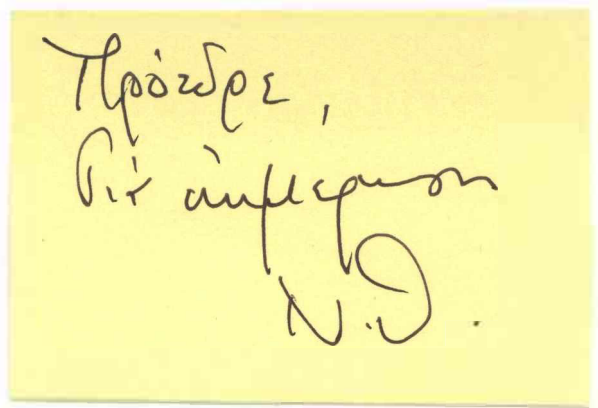 Πρόεδρε,
Γιά ἐνημέρωση
Ν.Θ.